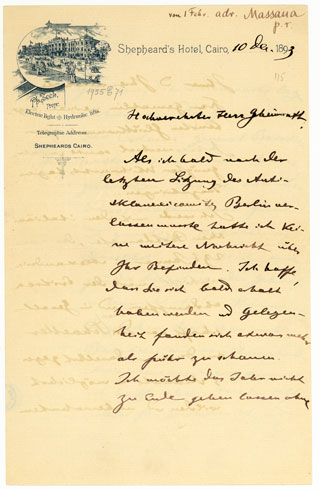 von 1 Febr. adr. Massaua
p. r.
Shepheard's Hotel, Cairo, 10 Dec. 1893
Ph. Zech, Propr.
Electric light & Hydraulic lifts.
Telegraphic Address.
SHEPHEARDS CAIRO.
Hochverehrter Herr Geheimrath!
Als ich bald nach der
letzten Sitzung des Anti-
sklavereicomités Berlin ver-
lassen musste hatte ich kei-
ne weitere Nachricht über
Ihr Befinden. Ich hoffe
dass Sie sich bald erholt
haben werden und Gelegen-
heit fanden sich etwas mehr
als früher zu schonen.
Ich möchte das Jahr nicht
zu Ende gehen lassen ohne